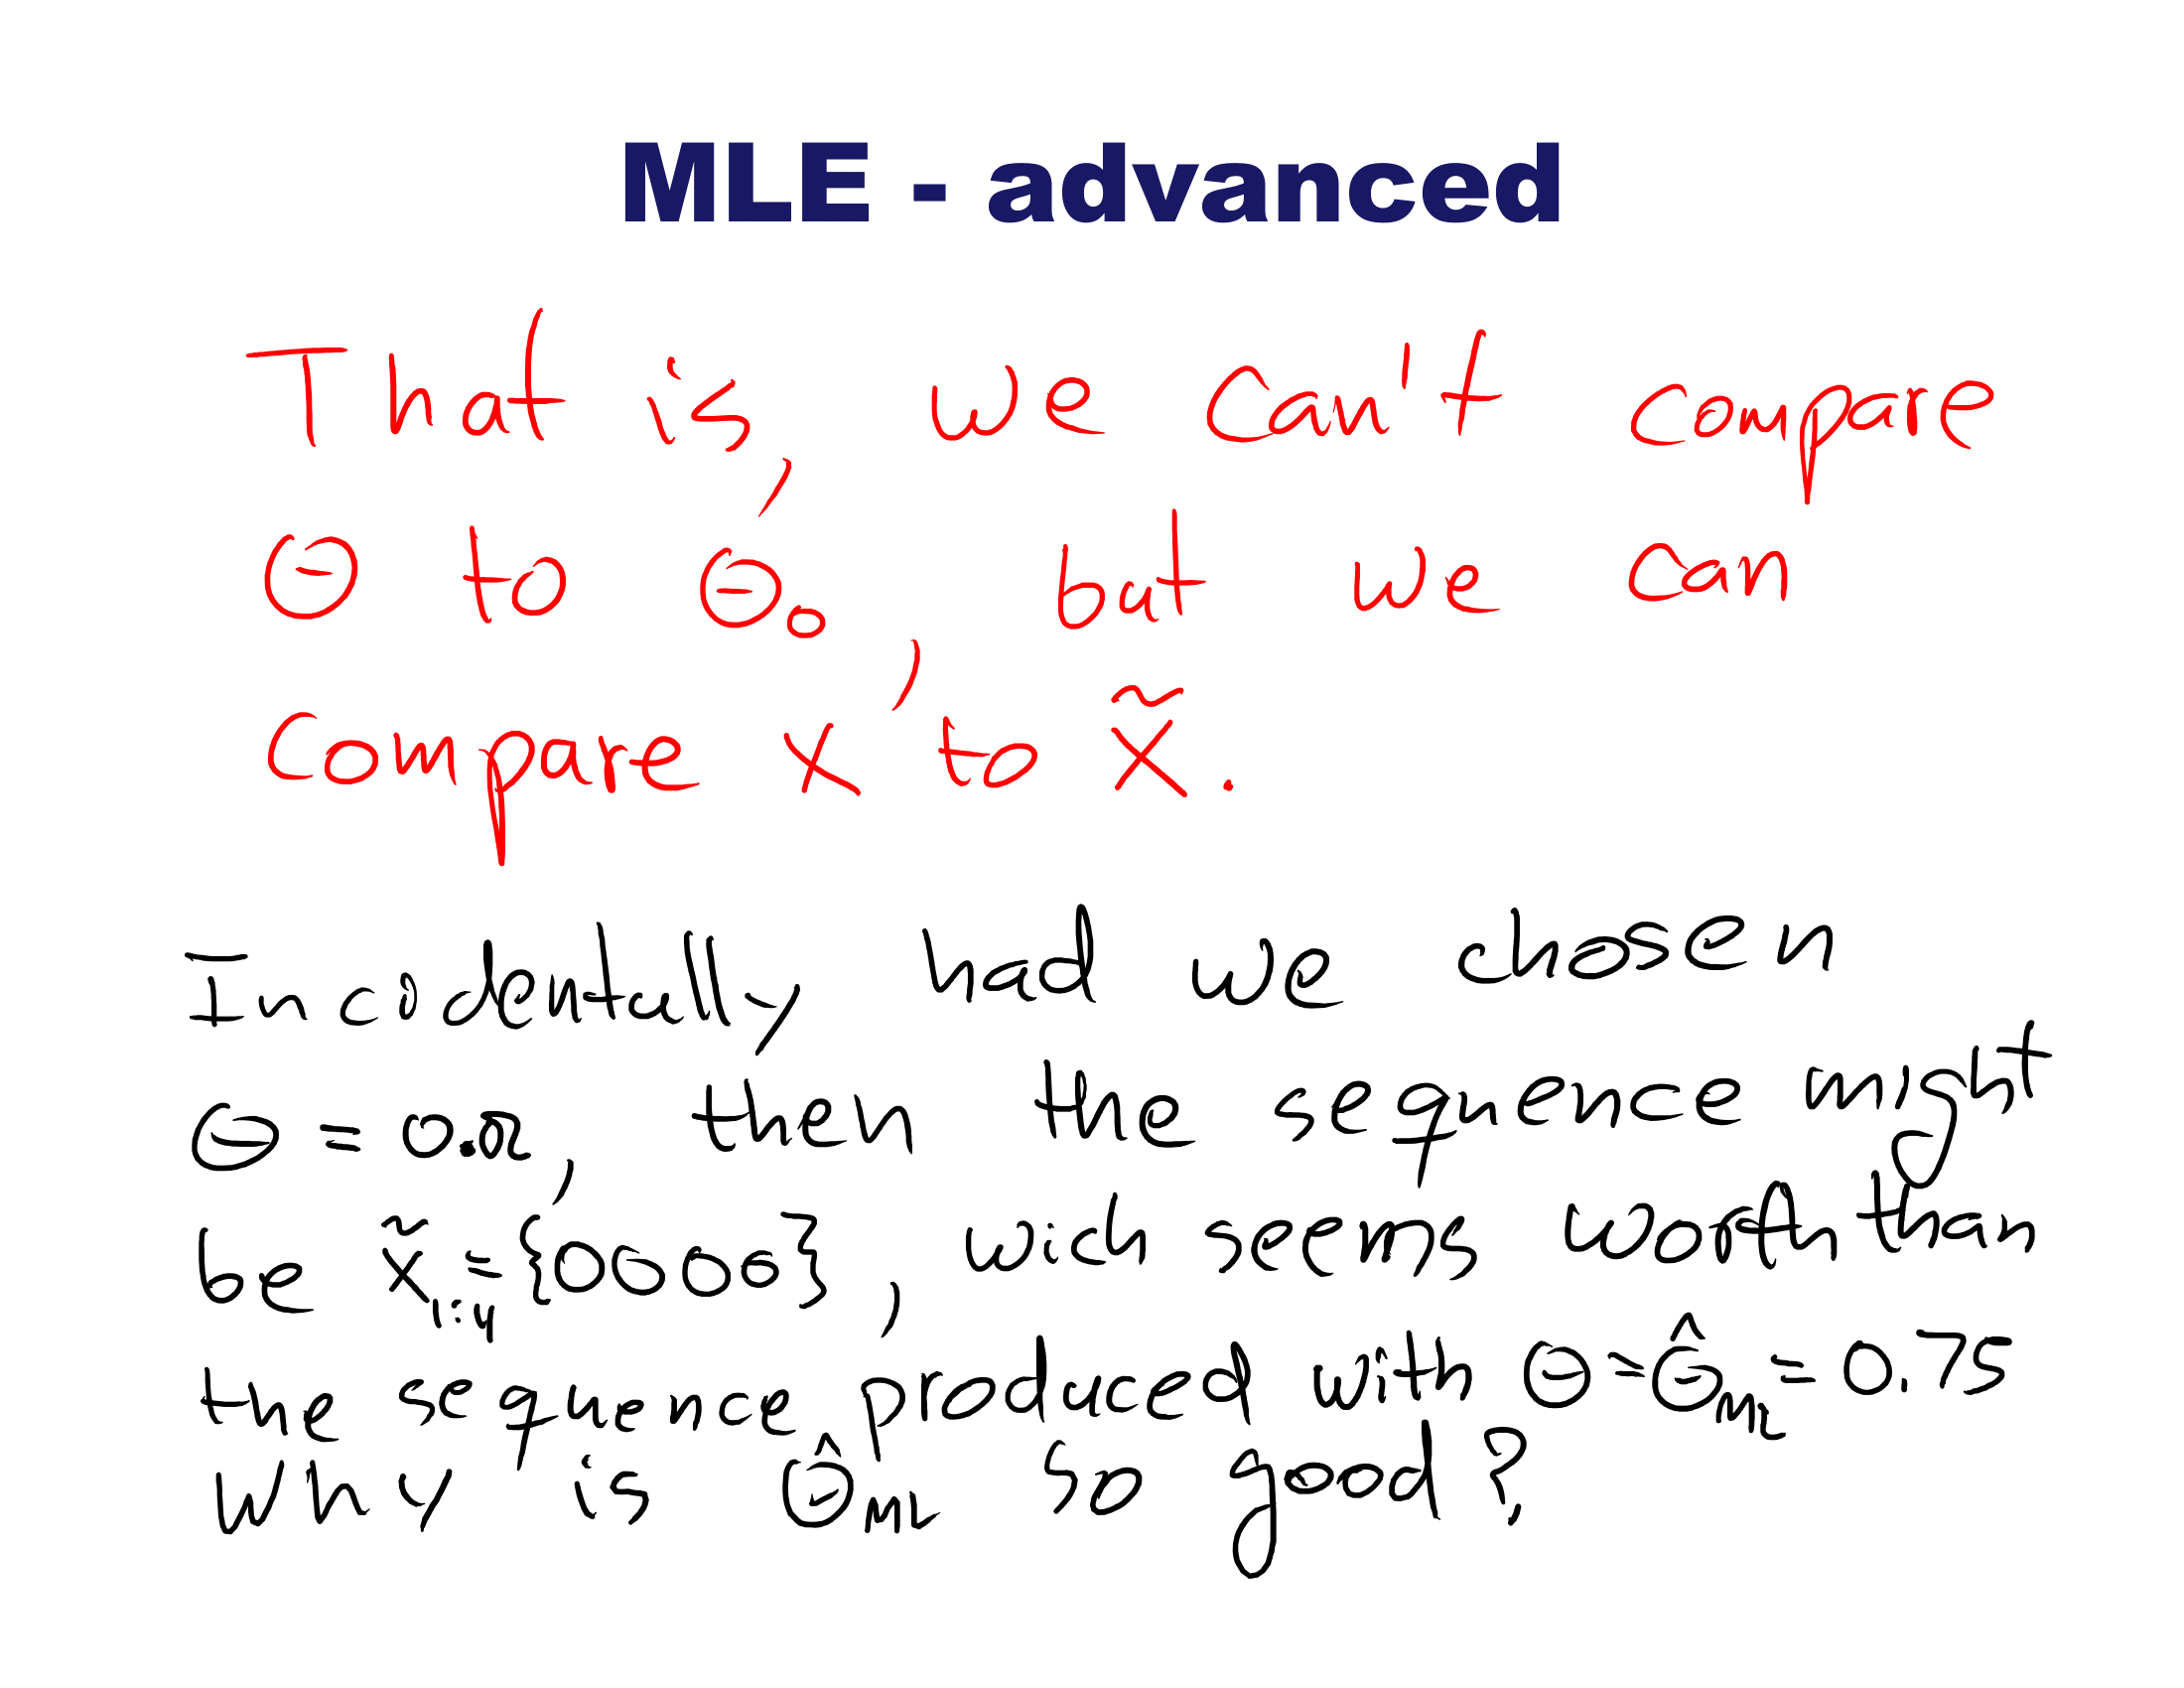 MLE - advanced
That is, we can't compare
θ to θ₀, but we can
compare x to x̃.
Incidentally had we chosen
θ = 0.02, then the sequence might
be x̃₁:₄ = {0000}, wich seems worth than
the sequence produced with θ = θ̂ML = 0.75
Why is θ̂ML so good?